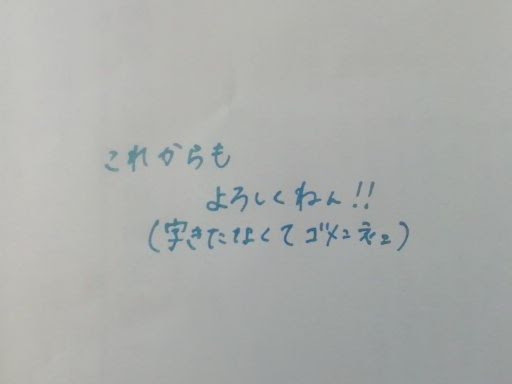 これからも
よろしくねん!!
(字きたなくてゴメンネ)